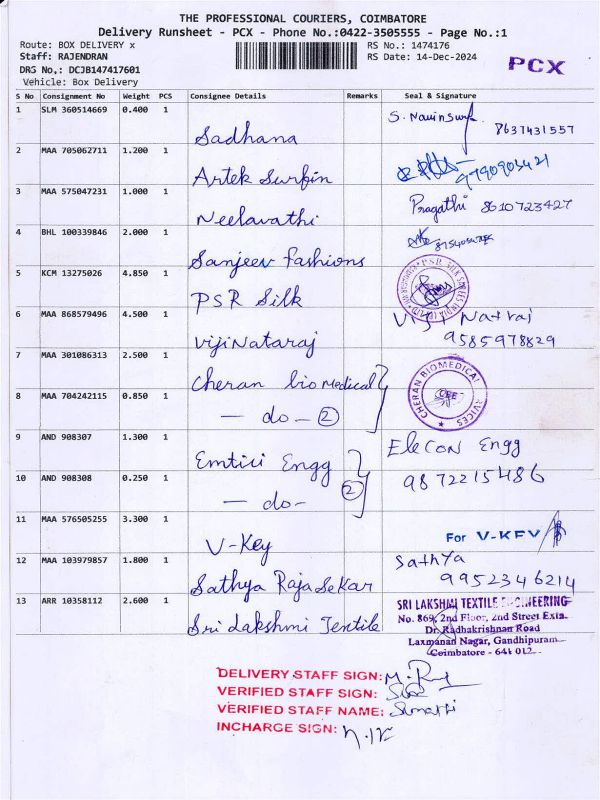 THE PROFESSIONAL COURIERS, COIMBATORE
Delivery Runsheet - PCX - Phone No.:0422-3505555 - Page No.:1
Route: BOX DELIVERY x RS No.: 1474176
Staff: RAJENDRAN RS Date: 14-Dec-2024
DRS No,: DCJB147417601 PCX
Vehicle: Box Delivery
S No Consignment No Weight PCS Consignee Details Remarks Seal & Signature
1 SLM 360514669 0.400 1 Sadhana S. 8637431557
2 MAA 705062711 1.200 1 Artek Surfin 9790903421
3 MAA 575047231 1.000 1 Neelavathi Pragathi 8610723427
4 BHL 100339846 2.000 1 Sanjeev fashions
5 KCM 13275026 4.850 1 PSR Silk
6 MAA 868579496 4.500 1 Viji Nataraj Viji Natraj
9585978829
7 MAA 301086313 2.500 1 Cheran bio Medical CHERAN BIOMEDICAL SERVICES
8 MAA 704242115 0.850 1 — do — 2
9 AND 908307 1.300 1 Emtici Engg Elecon Engg
9872215486
10 AND 908308 0.250 1 — do - 2
11 MAA 576505255 3.300 1 V-Key For V-KEY
12 MAA 103979857 1.800 1 Sathya Raja Sekar Sathya
9952346214
13 ARR 10358112 2.600 1 Sri Lakshmi Textile SRI LAKSHMI TEXTILE ENGINEERING
No. 869, 2nd Floor, 2nd Street Extn.
Dr. Radhakrishnan Road
Laxmanan Nagar, Gandhipuram
Coimbatore - 641 012.
DELIVERY STAFF SIGN:
VERIFIED STAFF SIGN:
VERIFIED STAFF NAME: Sumathi
INCHARGE SIGN: